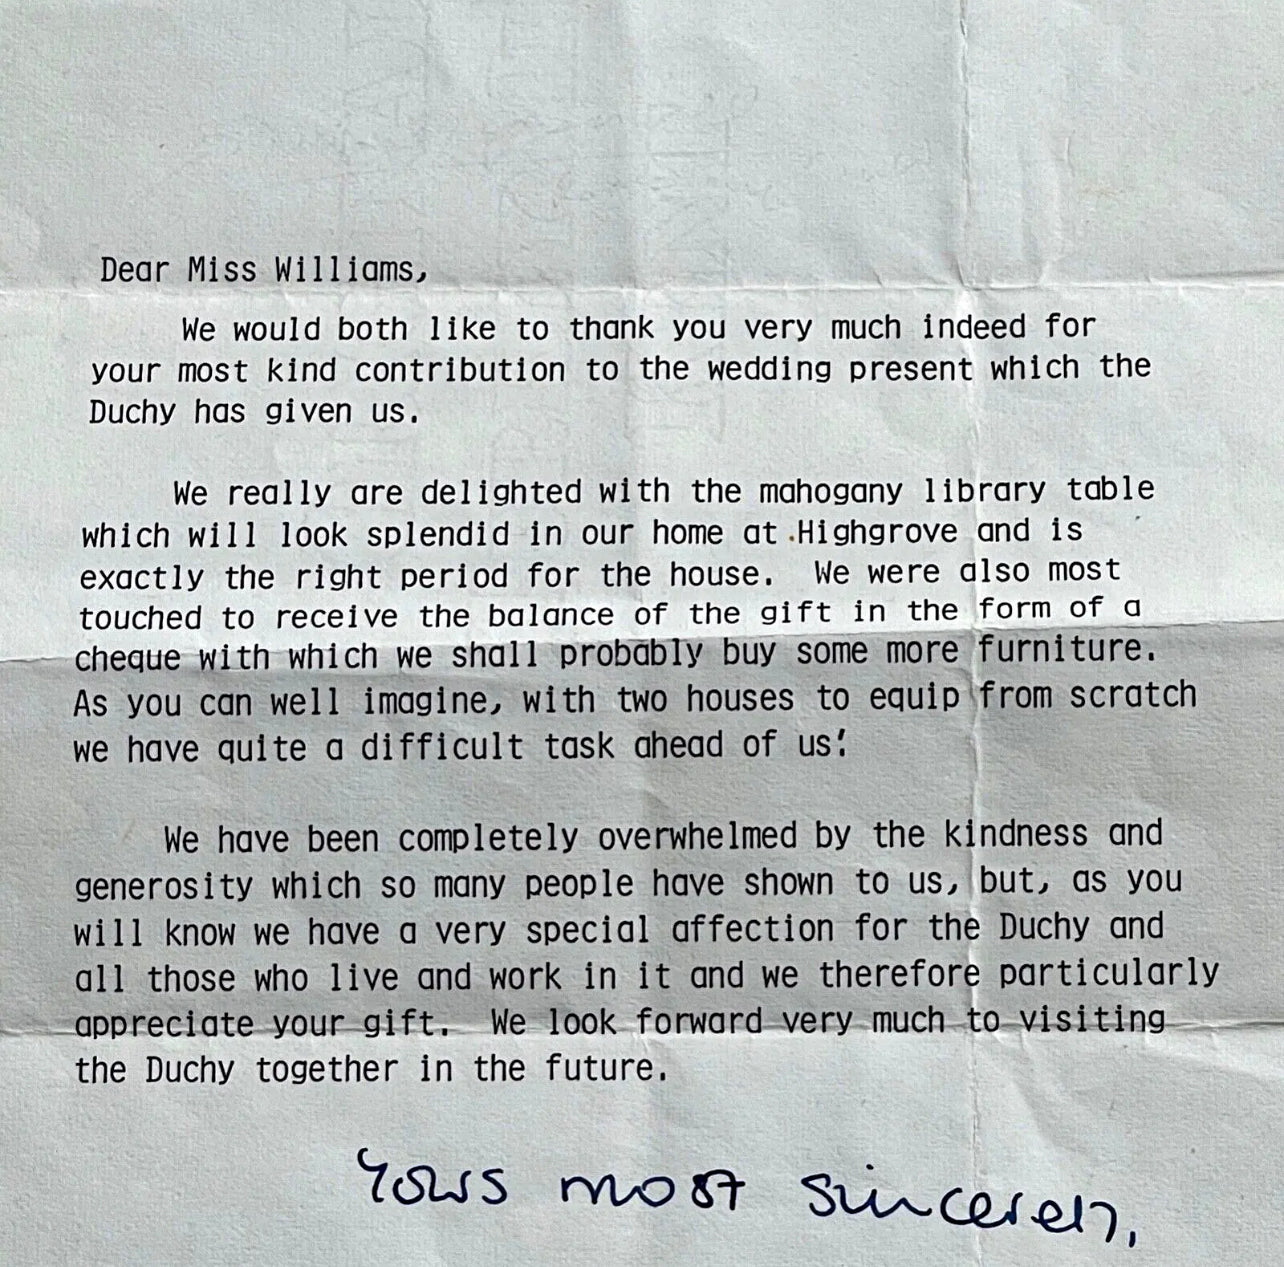 Dear Miss Williams,
We would both like to thank you very much indeed for
your most kind contribution to the wedding present which the
Duchy has given us.
We really are delighted with the mahogany library table
which will look splendid in our home at Highgrove and is
exactly the right period for the house. We were also most
touched to receive the balance of the gift in the form of a
cheque with which we shall probably buy some more furniture.
As you can well imagine, with two houses to equip from scratch
we have quite a difficult task ahead of us!
We have been completely overwhelmed by the kindness and
generosity which so many people have shown to us, but, as you
will know we have a very special affection for the Duchy and
all those who live and work in it and we therefore particularly
appreciate your gift. We look forward very much to visiting
the Duchy together in the future.
Yours most sincerely,